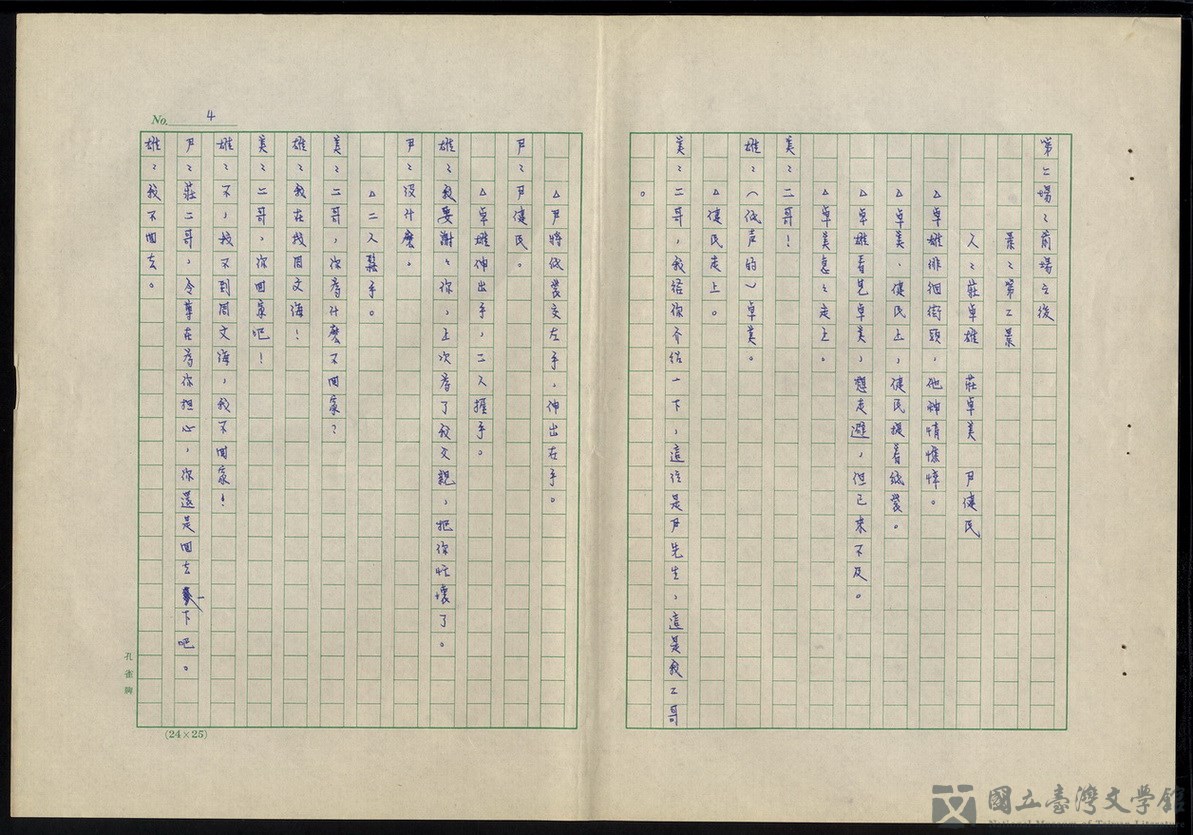 第七場:前場之後
景:第二景
人:莊卓雄 莊卓美 尹健民
△卓雄徘徊街頭,他神情憔悴。
△卓美、健民上,健民提着紙袋。
△卓雄看見卓美,想走避,但已來不及。
△卓美急急走上。
美:二哥!
雄:(低声的)卓美。
△健民走上。
美:二哥,我給你介紹一下,這位是尹先生,這是我二哥
。
△尹將紙袋交左手,伸出右手。
尹:尹健民。
△卓雄伸出手,二人握手。
雄:我要謝謝你,上次為了我父親,把你忙壞了。
尹:沒什麼。
△二人鬆手。
美:二哥,你為什麼不回家?
雄:我在找周文海!
美:二哥,你回家吧!
雄:不,找不到周文海,我不回家!
尹:莊二哥,令尊在為你担心,你還是回去一下吧。
雄:我不回去。
No. 4
孔雀牌
(24×25)
國立臺灣文學館
National Museum of Taiwan Literature